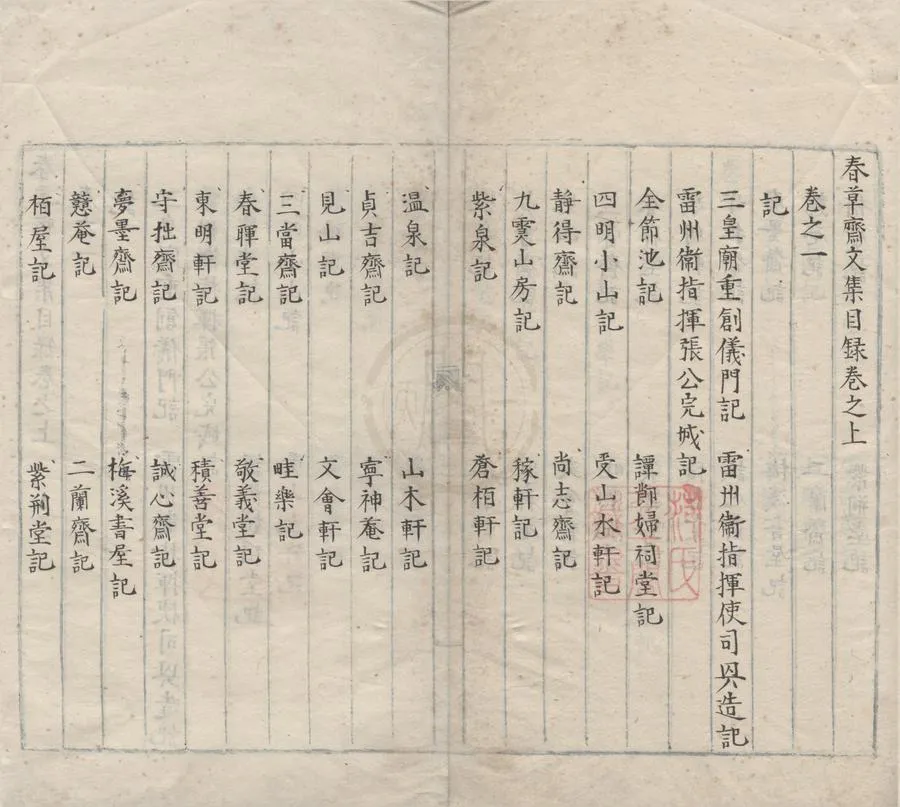 春草齋文集目録卷之上
卷之一
記
三皇廟重創儀門記　雷州衞指揮使司興造記
雷州衞指揮張公完城記
全節池記　譚節婦祠堂記
四明小山記　受山水軒記
靜得齋記　尚志齋記
九霙山房記　稼軒記
紫泉記　蒼栢軒記
温泉記　山木軒記
貞吉齋記　寧神菴記
見山記　文會軒記
三當齋記　畦樂記
春暉堂記　敬義堂記
東明軒記　積善堂記
守拙齋記　誠心齋記
夢墨齋記　梅溪書屋記
憩菴記　二蘭齋記
栢屋記　紫荆堂記